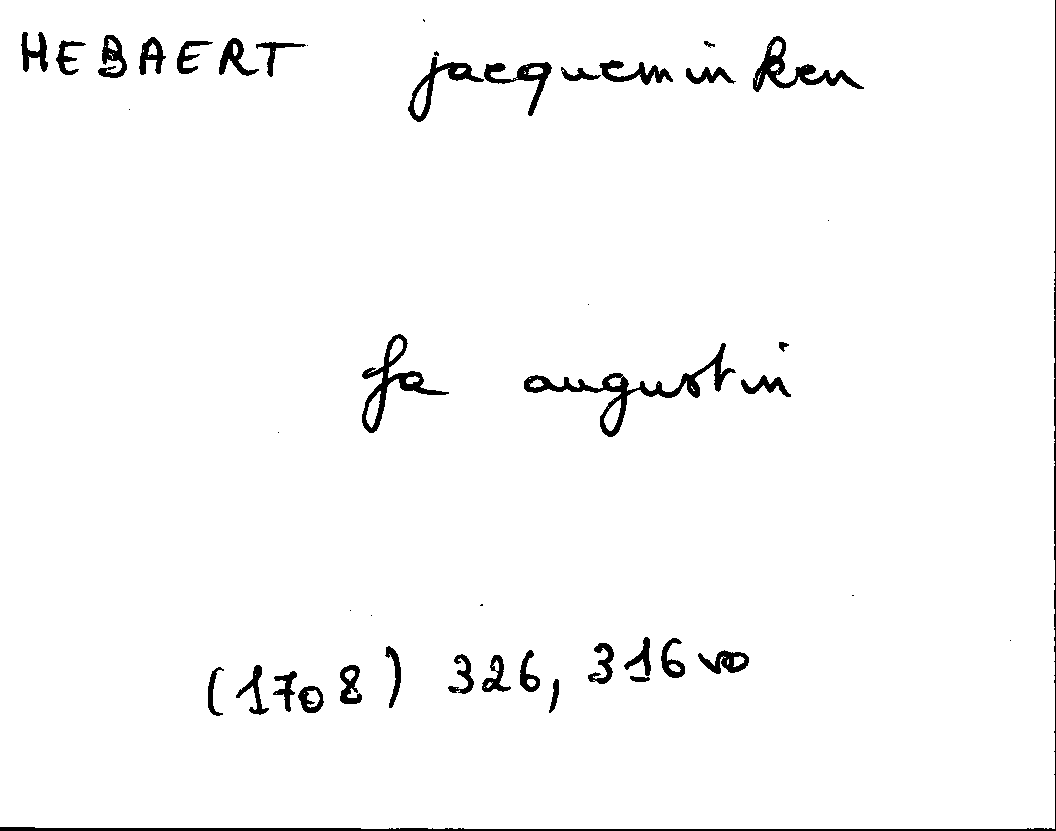 HEBAERT jacqueminken
fa augustin
(1708) 326, 316 vo